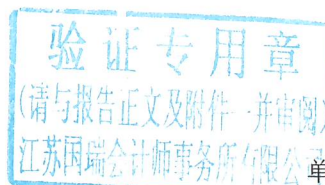 验证专用章
(请与报告正文及附件一并审阅)
江苏国瑞会计师事务所有限公司
单